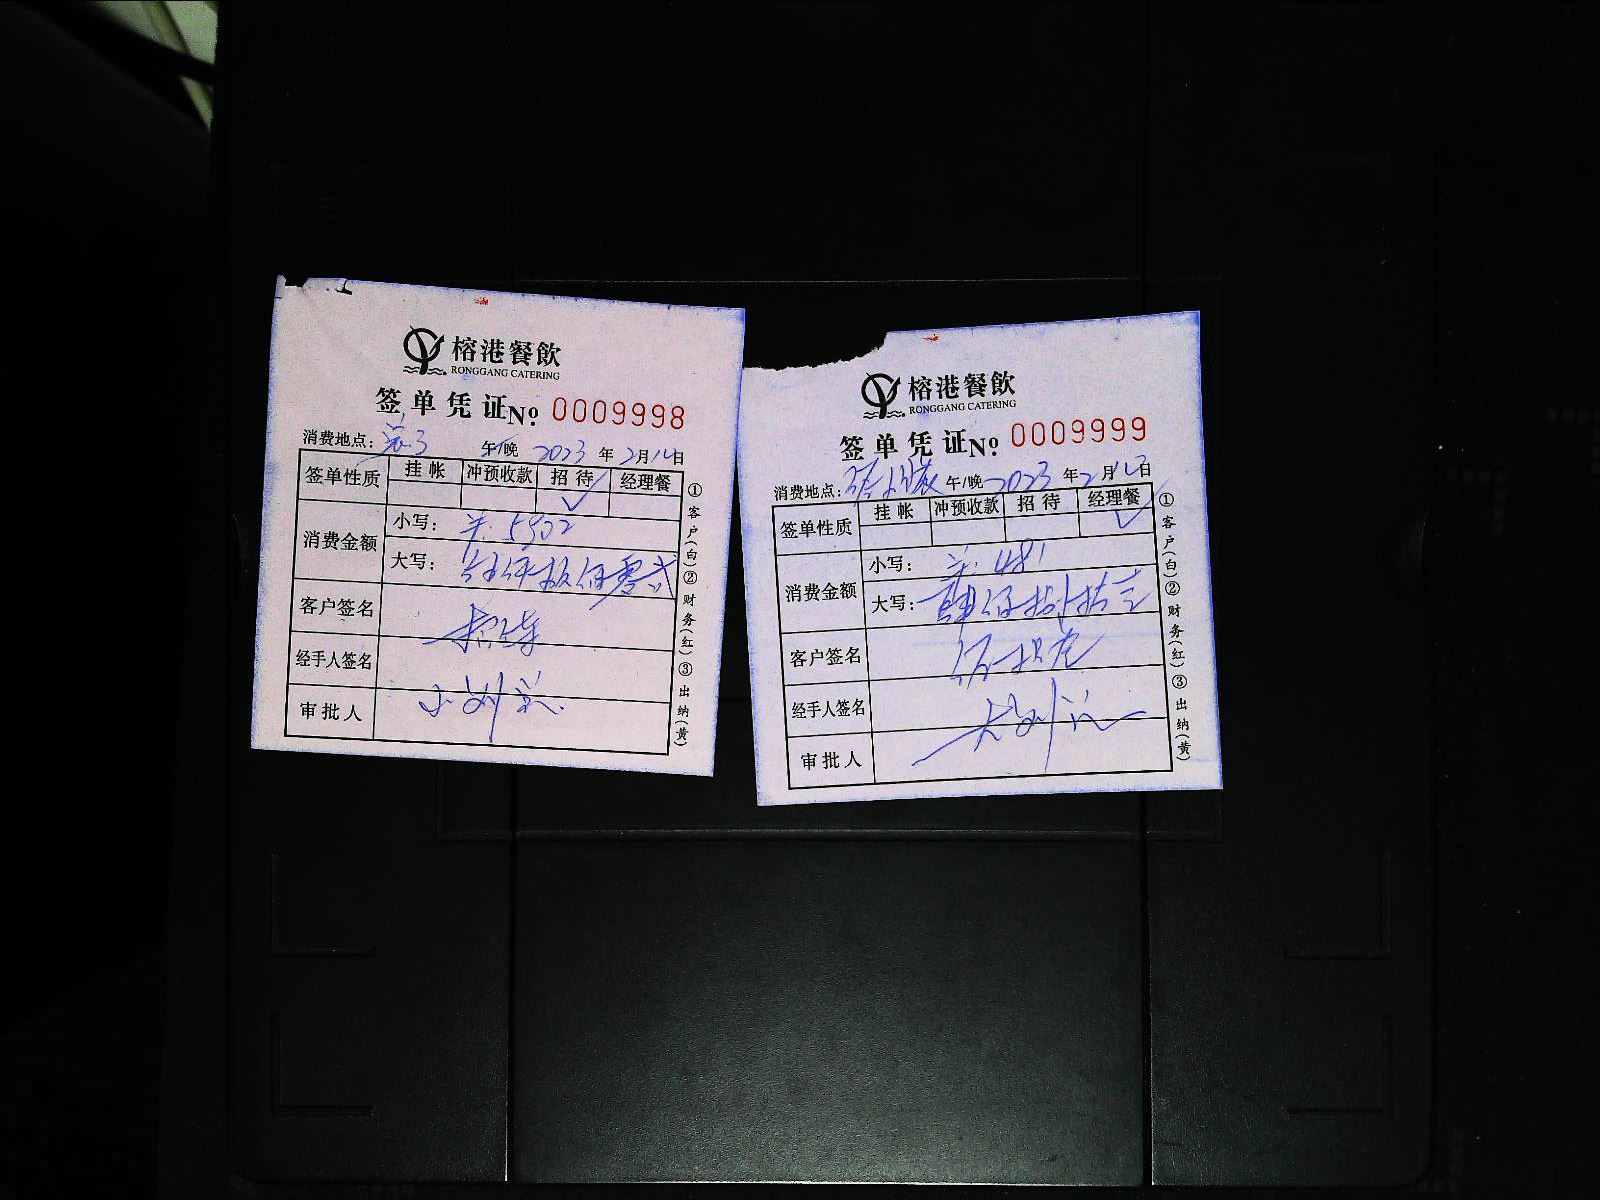 榕港餐飲
RONGGANG CATERING
签单凭证 No: 0009998
消费地点: 午/晚 2023 年 2 月 日
签单性质 挂帐 冲预收款 招待 经理餐
消费金额
小写: 5902
大写: 伍仟玖佰零贰
客户签名
经手人签名
审批人
①客户(白)②财务(红)③出纳(黄)
榕港餐飲
RONGGANG CATERING
签单凭证 No: 0009999
消费地点: 午/晚 2023 年 2 月 日
签单性质 挂帐 冲预收款 招待 经理餐
消费金额
小写: 481
大写: 肆佰捌拾壹
客户签名
经手人签名
审批人
①客户(白)②财务(红)③出纳(黄)